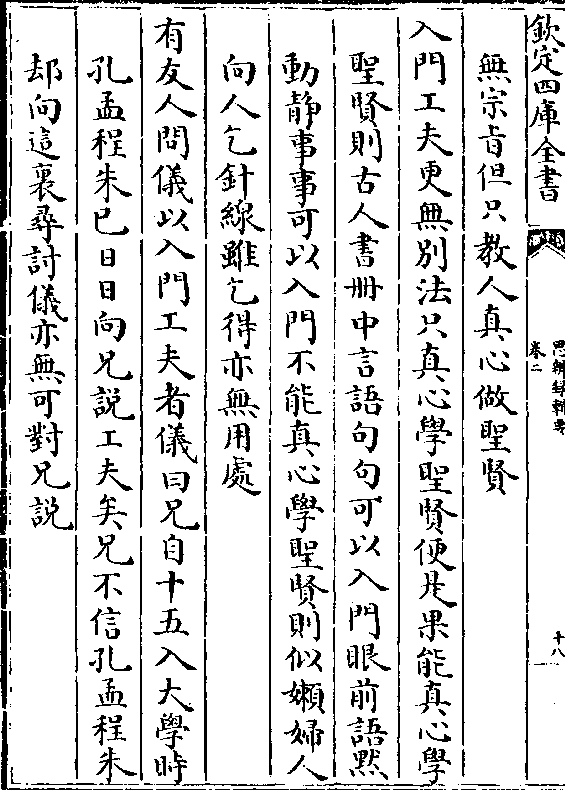 欽定四庫全書
思辨録輯要
卷二
十八
無宗㫖但只教人真心做聖賢
入門工夫更無别法只真心學聖賢便是果能真心學
聖賢則古人書冊中言語句句可以入門眼前語黙
動静事事可以入門不能真心學聖賢則似嬾婦人
向人乞針線雖乞得亦無用處
有友人問儀以入門工夫者儀曰兄自十五入大學時
孔孟程朱已日日向兄說工夫矣兄不信孔孟程朱
却向這裏尋討儀亦無可對兄説